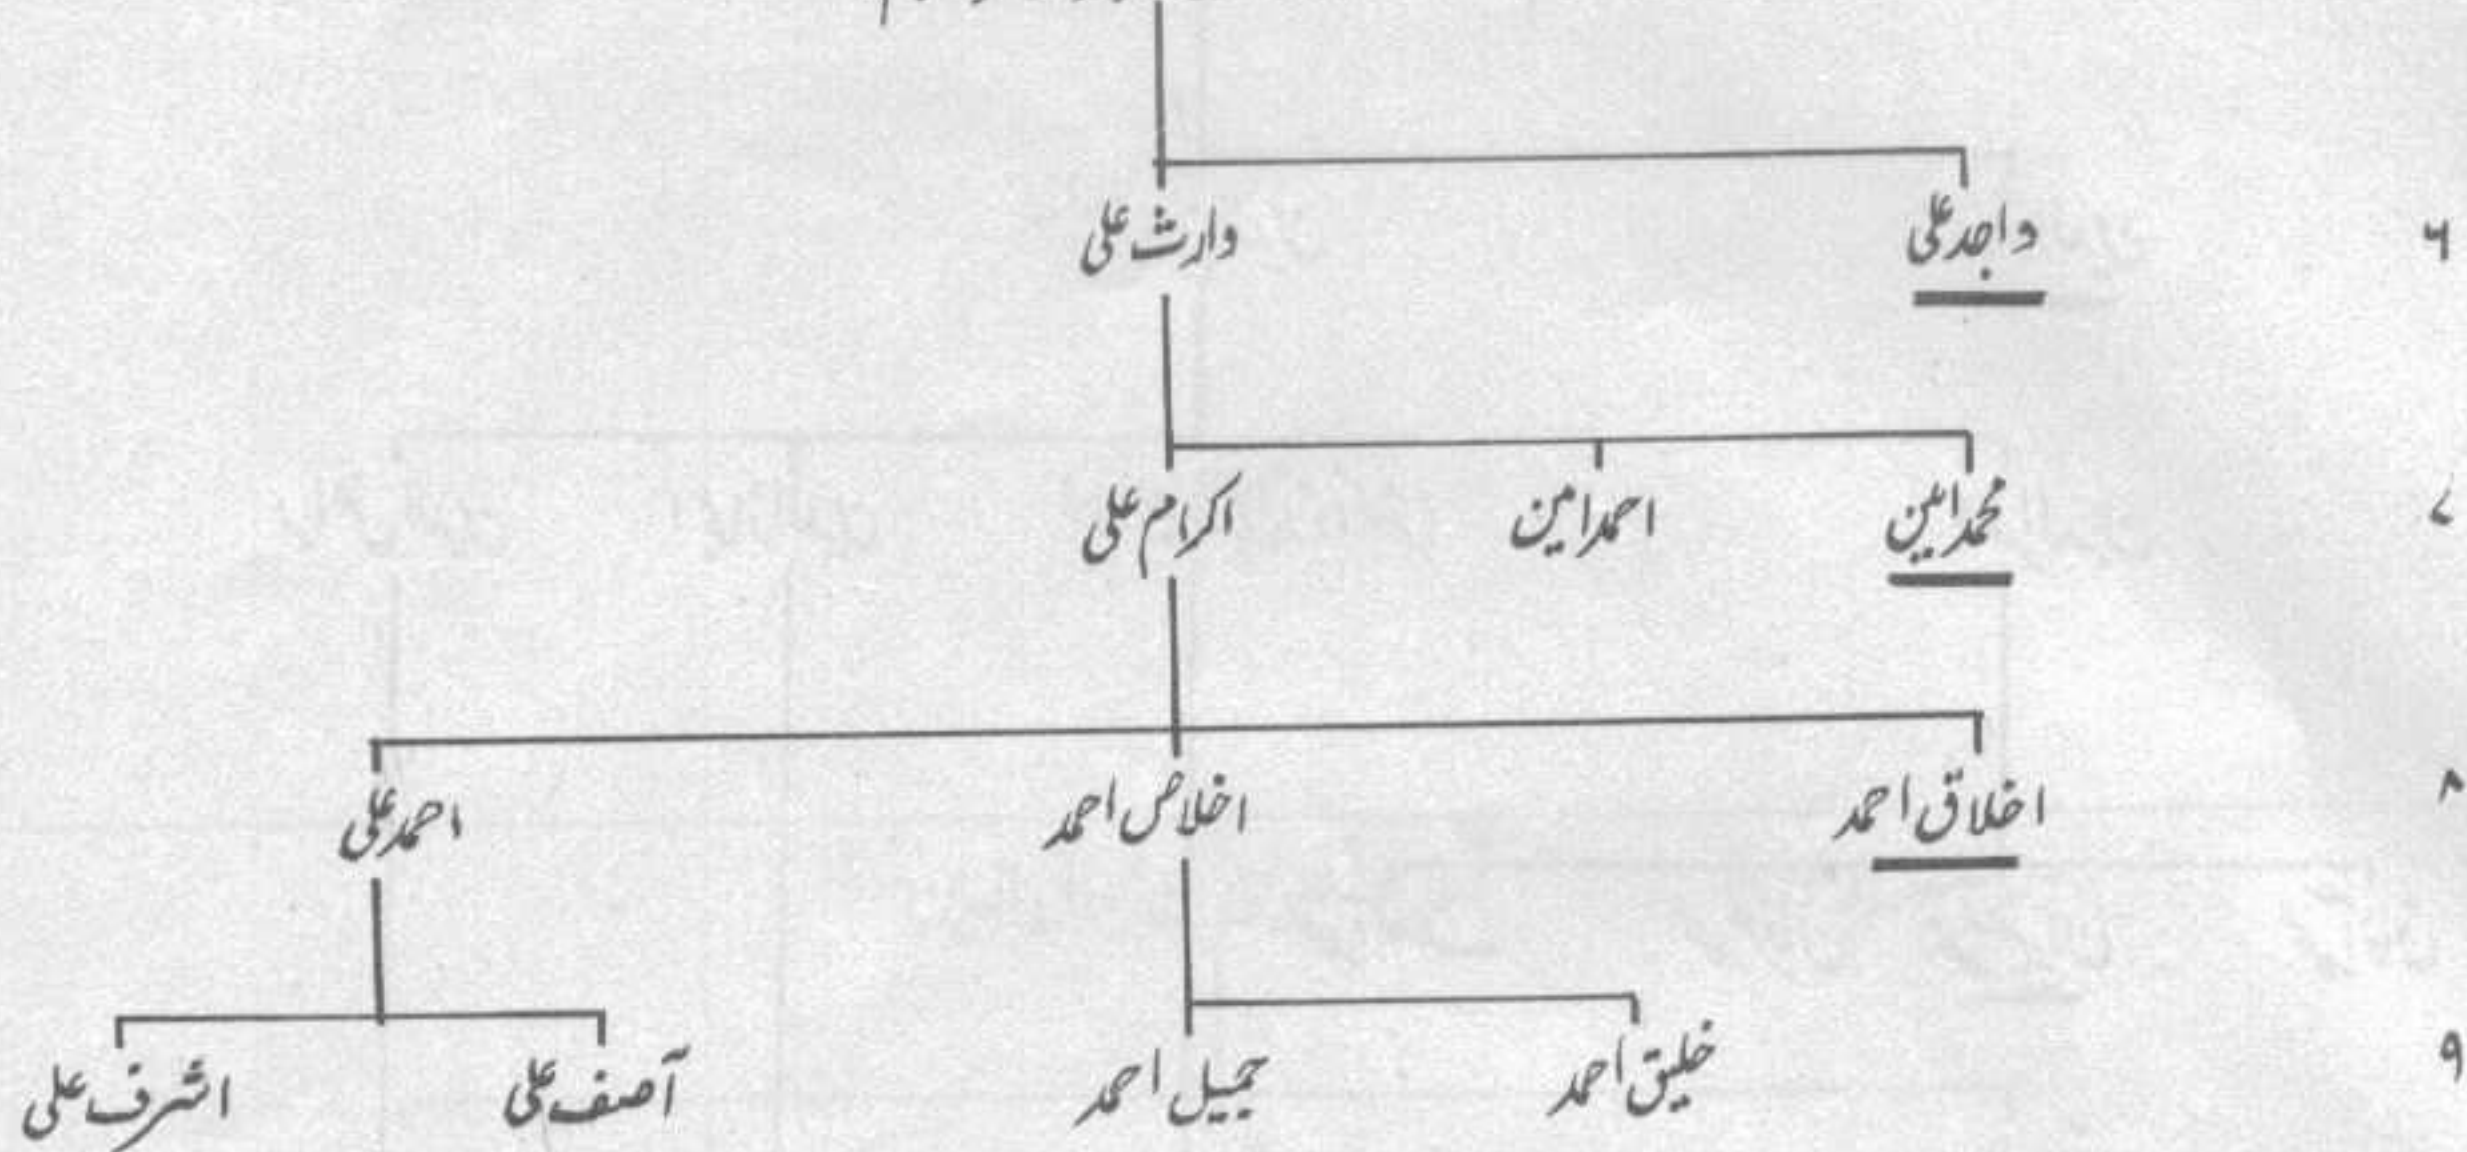 ۶ واجد علی وارث علی
۷ محمد امین احمد امین اکرام علی
۸ اخلاق احمد اخلاص احمد احمد علی
۹ خلیق احمد جمیل احمد آصف علی اشرف علی